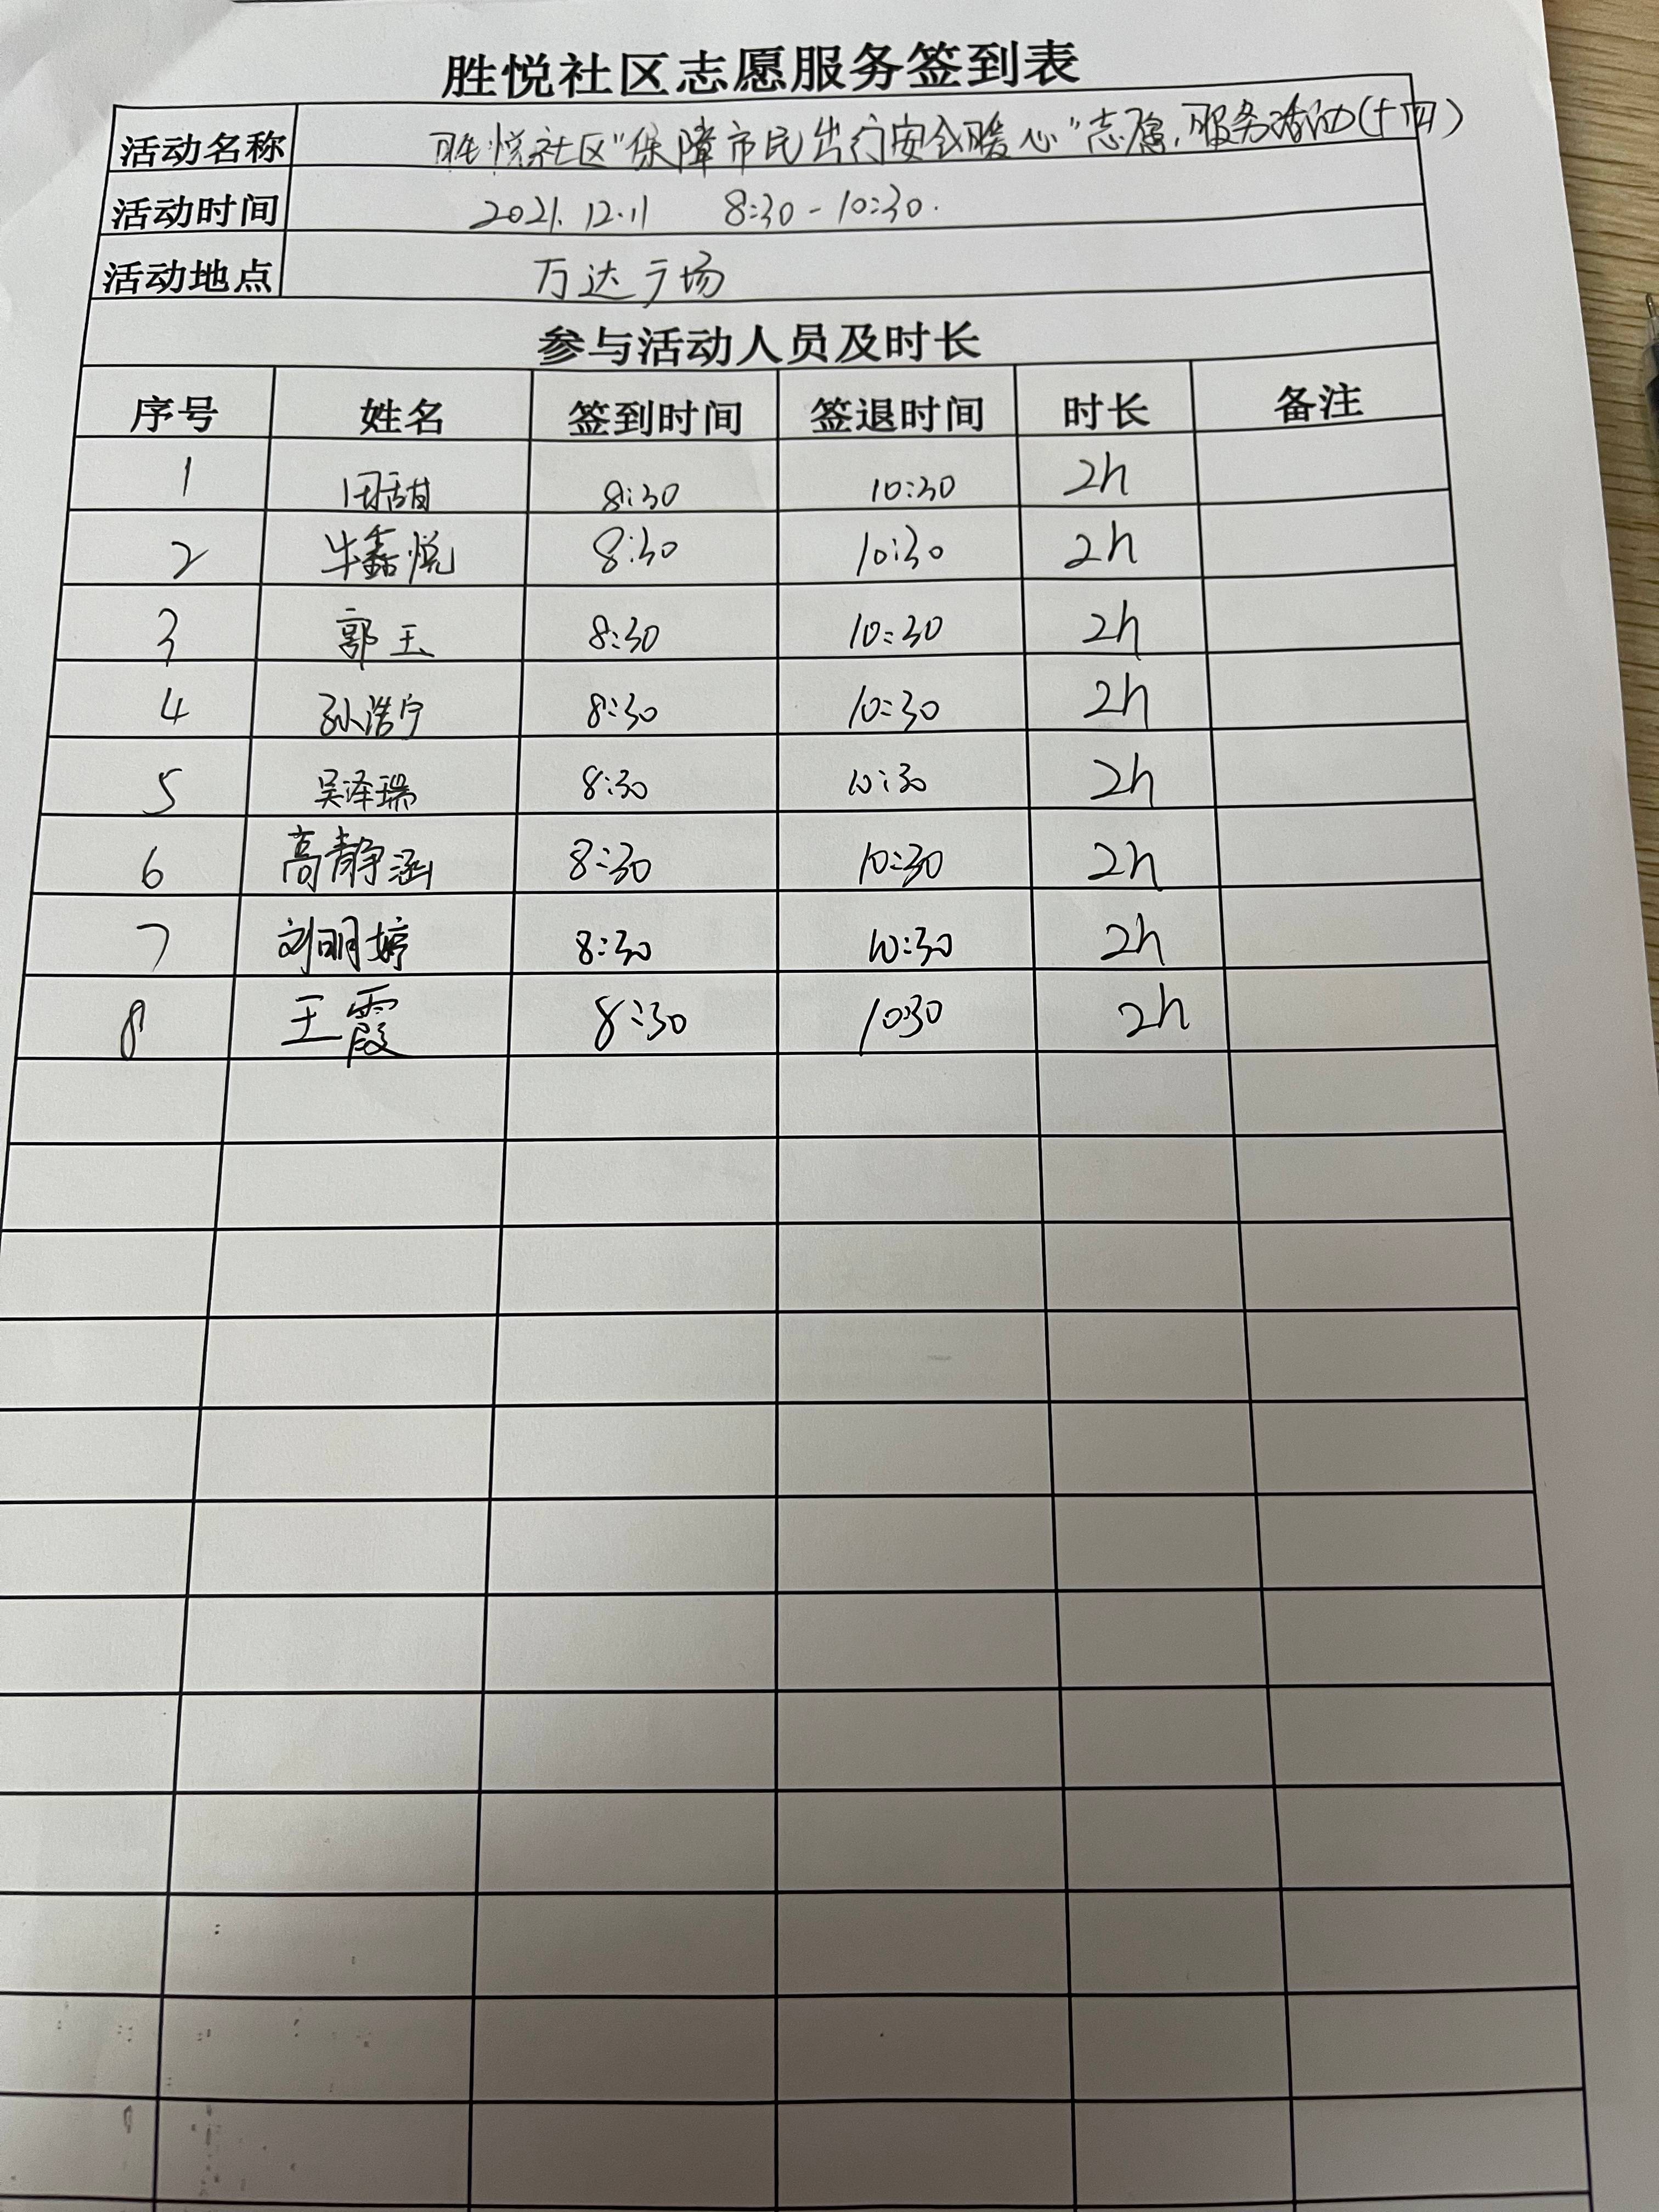 胜悦社区志愿服务签到表
活动名称 胜悦社区“保障市民出行安全暖心”志愿服务活动(十四)
活动时间 2021.12.11 8:30-10:30.
活动地点 万达广场
参与活动人员及时长
序号 姓名 签到时间 签退时间 时长 备注
1 田甜 8:30 10:30 2h
2 牛鑫悦 8:30 10:30 2h
3 郭玉 8:30 10:30 2h
4 孙浩宁 8:30 10:30 2h
5 吴泽瑞 8:30 10:30 2h
6 高静涵 8:30 10:30 2h
7 刘明婷 8:30 10:30 2h
8 王霞 8:30 10:30 2h